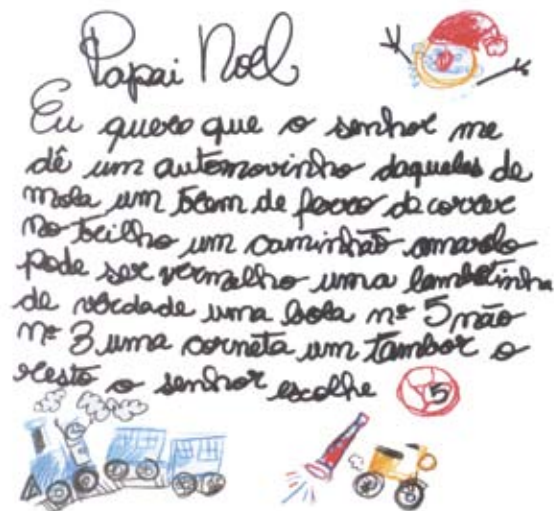 Papai Noel
Eu quero que o senhor me
dê um automovinho daqueles de
mola um trem de ferro de correr
no trilho um caminhão amarelo
pode ser vermelho uma lambretinha
de verdade uma bola nº 5 não
nº 3 uma corneta um tambor o
resto o senhor escolhe
5